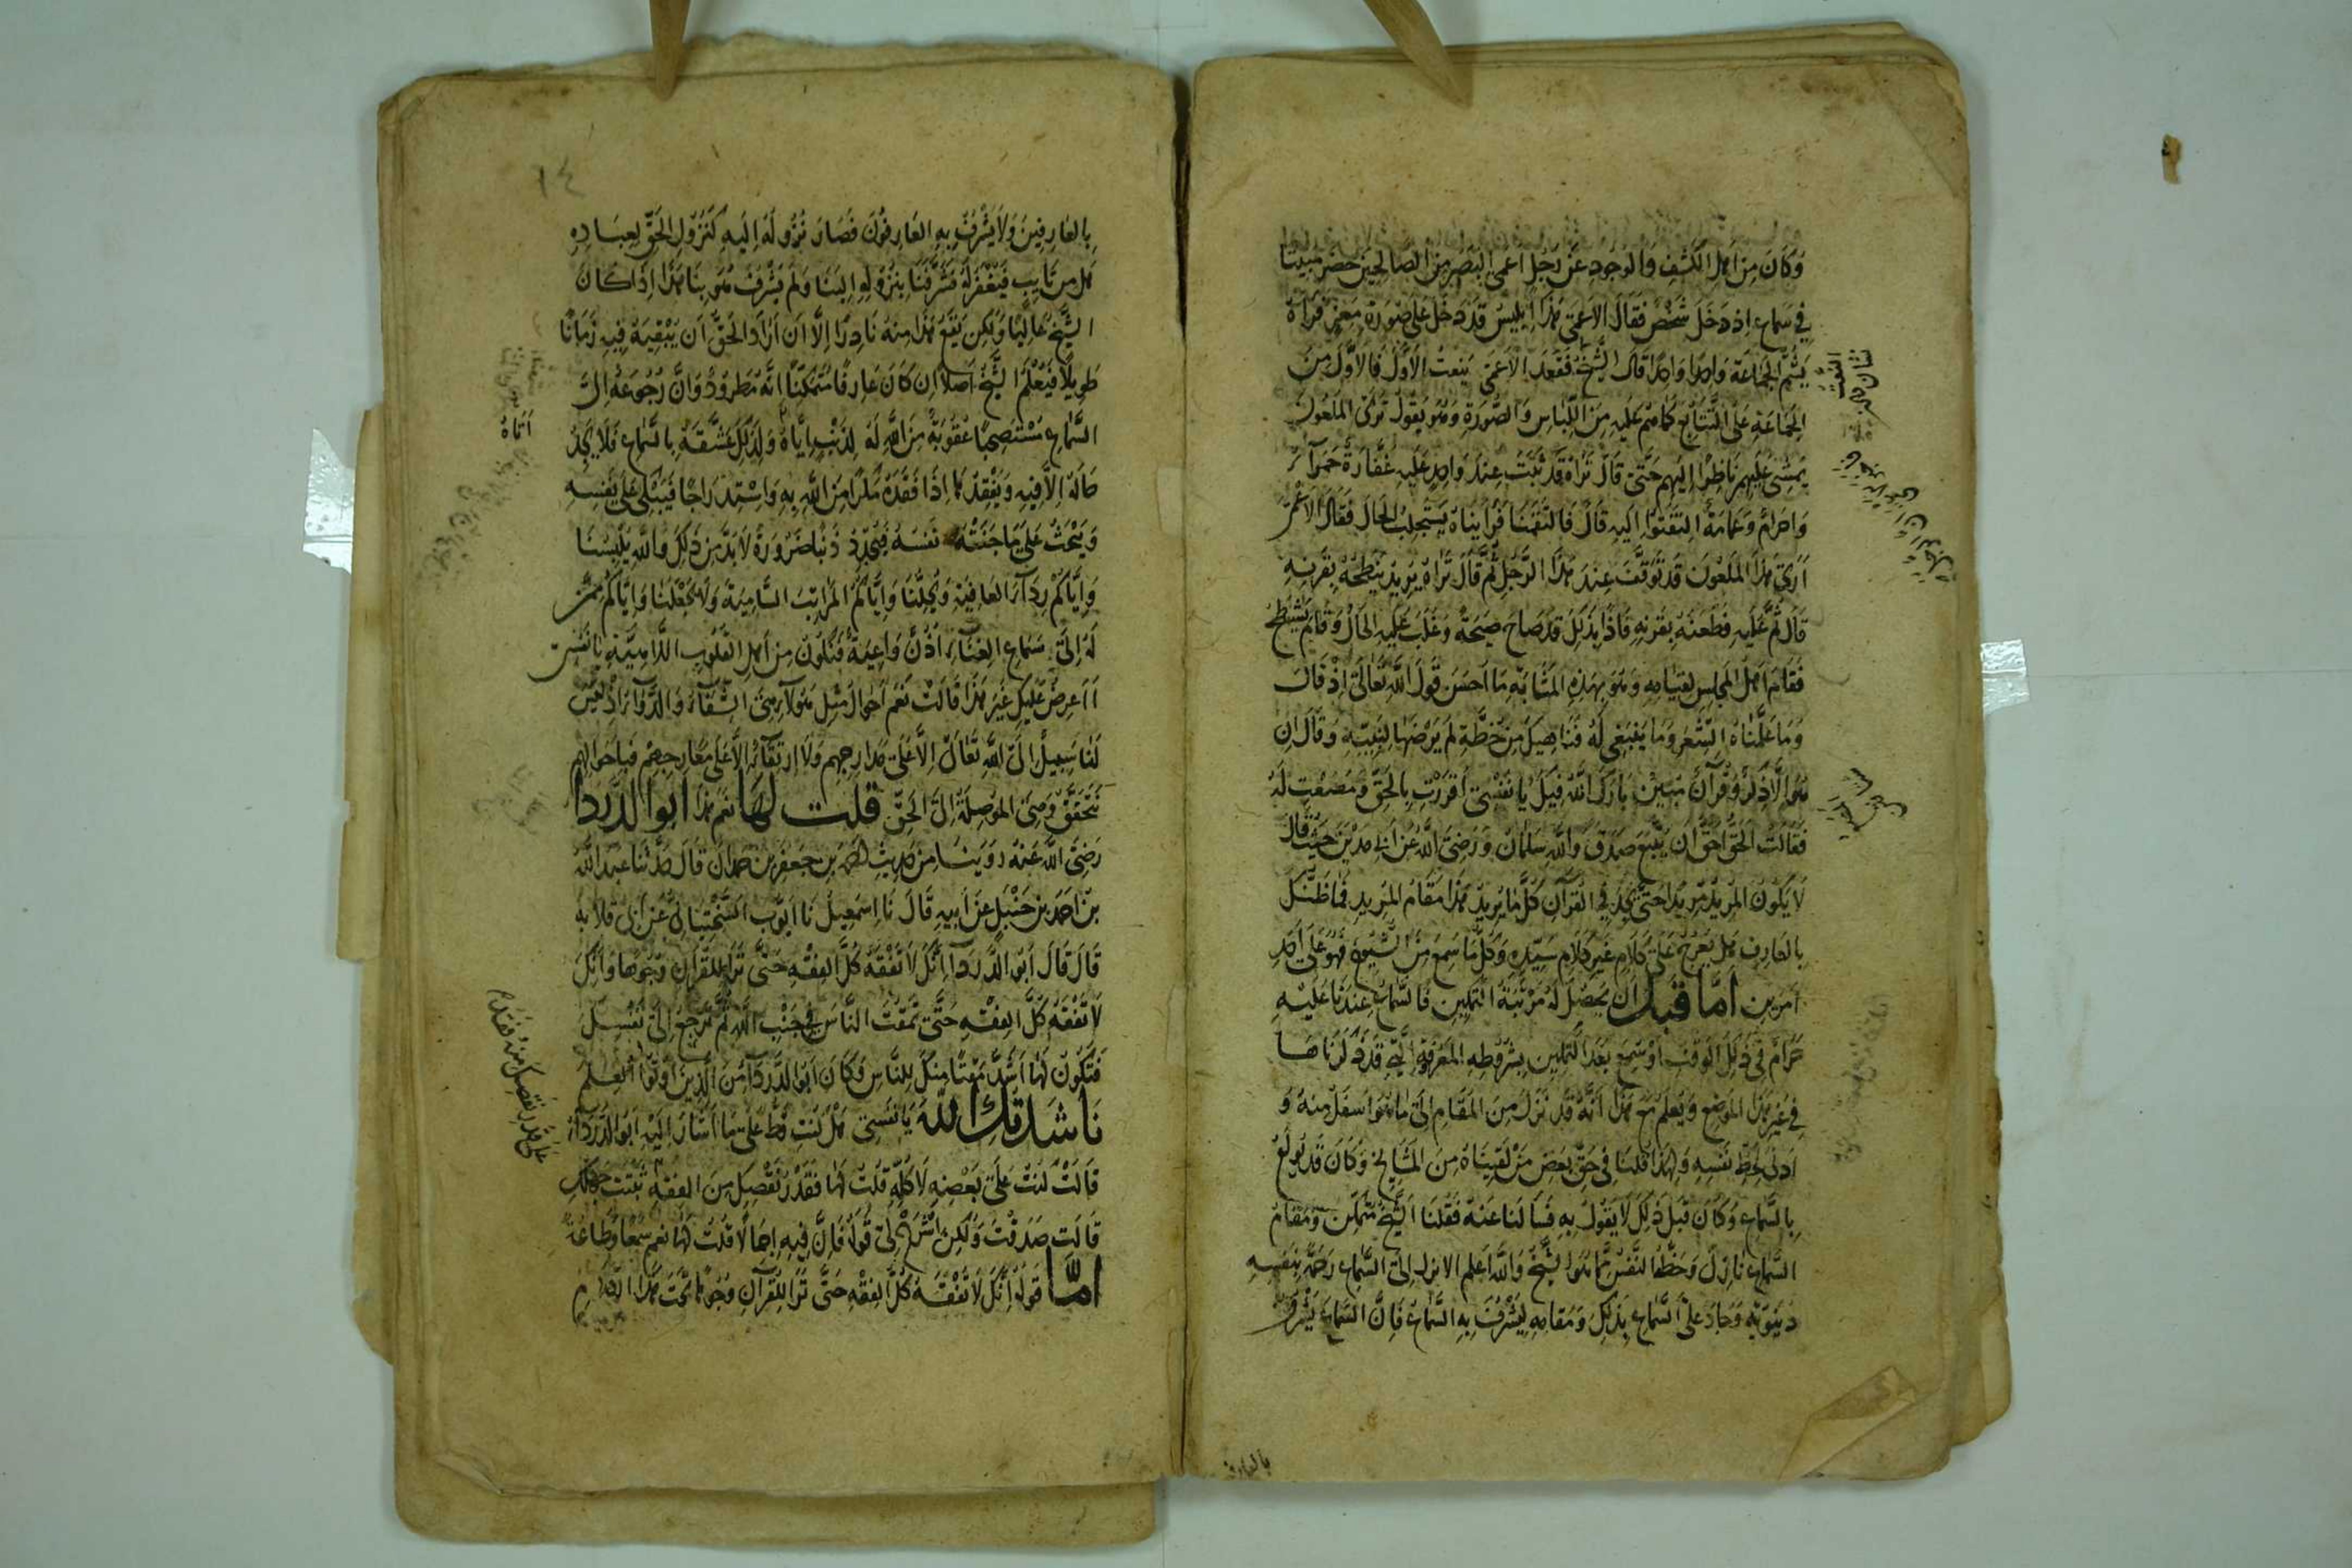 وَكَانَ مِنْ اَهْلِ الكَشْفِ وَالوُجُودِ عَنْ رَجُلٍ اَعْمَى البَصَرِ مِنَ الصَّالِحِينَ حَضَرَ مَبِيتًا
فِي سَمَاعٍ اِذْ دَخَلَ شَخْصٌ فَقَالَ الاَعْمَى هَذَا اِبْلِيسُ قَدْ دَخَلَ عَلَى صُورَةِ مَعِزٍ فَرَآهُ
يَشُمُّ الجَمَاعَةَ وَاحِدًا وَاحِدًا قَالَ الشَّيْخُ فَقَعَدَ الاَعْمَى يَنْعَتُ الاَوَّلَ فَالاَوَّلَ مِنَ
الجَمَاعَةِ عَلَى التَّتَابُعِ كَمَا هُمْ عَلَيْهِ مِنَ اللِّبَاسِ وَالصُّورَةِ وَهُوَ يَقُولُ تَرَى المَلْعُونَ
يَمْشِي عَلَيْهِمْ نَاظِرًا اِلَيْهِمْ حَتَّى قَالَ تَرَاهُ قَدْ ثَبَتَ عِنْدَ وَاحِدٍ عَلَيْهِ غِفَارَةٌ حَمْرَاءُ
وَاِحْرَامٌ وَعِمَامَةٌ اِلْتَفِتُوا اِلَيْهِ قَالَ فَالْتَفَتْنَا فَرَاَيْنَاهُ يَسْتَجْلِبُ الحَالَ فَقَالَ الاَعْمَى
اَرَى هَذَا المَلْعُونَ قَدْ تَوَقَّفَ عِنْدَ هَذَا الرَّجُلِ ثُمَّ قَالَ تَرَاهُ يُرِيدُ يَنْطَحُهُ بِقَرْنِهِ
قَالَ ثُمَّ عَلَيْهِ فَطَعَنَهُ بِقَرْنِهِ فَاِذَا بِذَلِكَ قَدْ صَاحَ صَيْحَةً وَغَلَبَ عَلَيْهِ الحَالُ وَقَامَ يَشْطَحُ
فَقَامَ اَهْلُ المَجْلِسِ لِقِيَامِهِ وَهُوَ بِهَذِهِ المَثَابَةِ مَا اَحْسَنَ قَوْلَ اللَّهِ تَعَالَى اِذْ قَالَ
وَمَا عَلَّمْنَاهُ الشِّعْرَ وَمَا يَنْبَغِي لَهُ فَنَاهِيكَ مِنْ خُطَّةٍ لَمْ يَرْضَهَا لِنَبِيِّهِ وَقَالَ اِنْ
هُوَ اِلَّا ذِكْرٌ وَقُرْآنٌ مُبِينٌ بَارَكَ اللَّهُ فِيكِ يَا نَفْسِي اَقْرَرْتِ بِالحَقِّ وَخَضَعْتِ لَهُ
فَقَالَتْ الحَقُّ اَحَقُّ اَنْ يُتَّبَعَ صَدَقَ وَاللَّهِ سَلْمَانُ وَرَضِيَ اللَّهُ عَنْ اَبِي مَدْيَنَ حَيْثُ قَالَ
لَا يَكُونُ المُرِيدُ مُرِيدًا حَتَّى يَجِدَ فِي القُرْآنِ كُلَّ مَا يُرِيدُ هَذَا مَقَامُ المُرِيدِ فَمَا ظَنُّكَ
بِالعَارِفِ هَلْ يَعْرُجُ عَلَى كَلَامٍ غَيْرِ كَلَامِ سَيِّدِهِ وَكُلُّ مَا سَمِعَ مِنَ الشُّيُوخِ فَهُوَ عَلَى اَحَدِ
اَمْرَيْنِ اَمَّا قَبْلَ اَنْ يَحْصُلَ لَهُ مَرْتَبَةُ التَّمْكِينِ فَالسَّمَاعُ عِنْدَنَا عَلَيْهِ
حَرَامٌ فِي ذَلِكَ الوَقْتِ اَوْ سَمِعَ بَعْدَ التَّمْكِينِ بِشُرُوطِهِ المَعْرُوفَةِ الَّتِي قَدْ ذَكَرْنَاهَا
فِي غَيْرِ هَذَا المَوْضِعِ وَيَعْلَمُ مَعَ هَذَا اَنَّهُ قَدْ نَزَلَ مِنَ المَقَامِ اِلَى مَا هُوَ اَسْفَلُ مِنْهُ وَ
اَدْنَى لِحَظِّ نَفْسِهِ وَلِهَذَا قُلْنَا فِي حَقِّ بَعْضِ مَنْ لَقِينَاهُ مِنَ المَشَايِخِ وَكَانَ قَدْ يُولَعُ
بِالسَّمَاعِ وَكَانَ قَبْلَ ذَلِكَ لَا يَقُولُ بِهِ فَسَاَلْنَا عَنْهُ فَقُلْنَا الشَّيْخُ مُتَمَكِّنٌ وَمَقَامُ
السَّمَاعِ نَازِلٌ وَحَظُّ النَّفْسِ مَا هُوَ الشَّيْخُ وَاللَّهُ اَعْلَمُ الا نزل اِلَى السَّمَاعِ رَحْمَةً بِنَفْسِهِ
دَنِيوِيَّة وَجَادَ عَلَى السَّمَاعِ بِذَلِكَ وَمَقَامِهِ لِيَشْرُفَ بِهِ السَّمَاعُ فَاِنَّ السَّمَاعَ يَشْرُفُ
بالعارف
١٤
بِالعَارِفِينَ وَلَا يَشْرُفُ بِهِ العَارِفُونَ فَصَارَ نُزُولُهُ اِلَيْهِ كَنُزُولِ الحَقِّ لِعِبَادِهِ
هَلْ مِنْ تَايِبٍ فَيُغْفَرَ لَهُ فَشَرَّفَنَا بِنُزُولِهِ اِلَيْنَا وَلَمْ يَشْرُفْ هُوَ بِنَا هَذَا اِذَا كَانَ
الشَّيْخُ عَالِيًا وَلَكِنْ يَقَعُ هَذَا مِنْهُ نَادِرًا اِلَّا اَنْ اَرَادَ الحَقُّ اَنْ يُبْقِيَهُ فِيهِ زَمَانًا
طَوِيلًا فَيَعْلَمُ الشَّيْخُ اَصْلًا اِنْ كَانَ عَارِفًا مُتَمَكِّنًا اَنَّهُ مَطْرُودٌ وَاَنَّ رُجُوعَهُ اِلَى
السَّمَاعِ مُسْتَصْحِبًا عُقُوبَةٌ مِنَ اللَّهِ لَهُ لِذَنْبٍ اِيَّاهُ وَلِذَلِكَ عَشَّقَهُ بِالسَّمَاعِ فَلَا يَجِدُ
حَالَهُ اِلَّا فِيهِ وَيَفْقِدُهَا اِذَا فَقَدَهُ مَكْرًا مِنَ اللَّهِ بِهِ وَاسْتِدْرَاجًا فَيَبْكِي عَلَى نَفْسِهِ
وَيَبْحَثُ عَلَى مَا جَنَتْهُ نَفْسُهُ فَيَجِدُ ذَنْبًا ضَرُورَةً لَا بُدَّ مِنْ ذَلِكَ وَاللَّهُ يُلْبِسُنَا
وَاِيَّاكُمْ رِدَاءَ العَافِيَةِ وَيُحِلُّنَا وَاِيَّاكُمُ المَرَاتِبَ السَّامِيَةَ وَلَا يَجْعَلُنَا وَاِيَّاكُمْ مِمَّنْ
لَهُ اِلَى سَمَاعِ الغِنَاءِ اُذُنٌ وَاعِيَةٌ فَنَكُونَ مِنْ اَهْلِ القُلُوبِ اللَّاهِيَةِ يَا نَفْسِي
اَاَعْرِضُ عَلَيْكِ غَيْرَ هَذَا قَالَتْ نَعَمْ اَحْوَالُ مِثْلِ هَؤُلَاءِ هِيَ الشِّفَاءُ وَالدَّوَاءُ اِذْ لَيْسَ
لَنَا سَبِيلٌ اِلَى اللَّهِ تَعَالَى اِلَّا عَلَى مَدَارِجِهِمْ وَلَا اِرْتِقَاءٌ اِلَّا عَلَى مَعَارِجِهِمْ فَبِاَحْوَالِهِمْ
نَتَحَقَّقُ وَهِيَ المُوصِلَةُ اِلَى الحَقِّ قُلْتُ لَهَا نَعَمْ هَذَا اَبُو الدَّرْدَا
رَضِيَ اللَّهُ عَنْهُ رَوَيْنَا مِنْ حَدِيثِ اَحْمَدَ بْنِ جَعْفَرِ بْنِ حَمْدَانَ قَالَ حَدَّثَنَا عَبْدُ اللَّهِ
بْنُ اَحْمَدَ بْنِ حَنْبَلٍ عَنْ اَبِيهِ قَالَ نَا اِسْمَعِيلُ نَا اَيُّوبُ السَّخْتِيَانِيُّ عَنْ اَبِي قِلَابَةَ
قَالَ قَالَ اَبُو الدَّرْدَا اِنَّكَ لَا تَفْقَهُ كُلَّ الفِقْهِ حَتَّى تَرَى لِلْقُرْآنِ وُجُوهًا وَاِنَّكَ
لَا تَفْقَهُ كُلَّ الفِقْهِ حَتَّى تَمْقُتَ النَّاسَ فِي جَنْبِ اللَّهِ ثُمَّ تَرْجِعُ اِلَى نَفْسِكَ
فَتَكُونُ لَهَا اَشَدَّ مَقْتًا مِنْكَ لِلنَّاسِ وَكَانَ اَبُو الدَّرْدَا مِنَ الَّذِينَ اُوتُوا العِلْمَ
نَاشَدْتُكِ اللَّهَ يَا نَفْسِي هَلْ كُنْتِ قَطُّ عَلَى مَا اَشَارَ اِلَيْهِ اَبُو الدَّرْدَاءِ
قَالَتْ كُنْتُ عَلَى بَعْضِهِ لَا كُلِّهِ قُلْتُ لَهَا فَقَدْ نَقَصَكِ مِنَ الفِقْهِ ثَبَتَ جَهْلُكِ
قَالَتْ صَدَقْتَ وَلَكِنِ اشْرَحْ لِي قَوْلَهُ فَاِنَّ فِيهِ اِجْمَالًا قُلْتُ لَهَا نَعَمْ سَمْعًا وَطَاعَةً
اَمَّا قَوْلُهُ اِنَّكَ لَا تَفْقَهُ كُلَّ الفِقْهِ حَتَّى تَرَى لِلْقُرْآنِ وُجُوهًا تَحْتَ هَذَا الكَلَامِ
اَتَاهُ